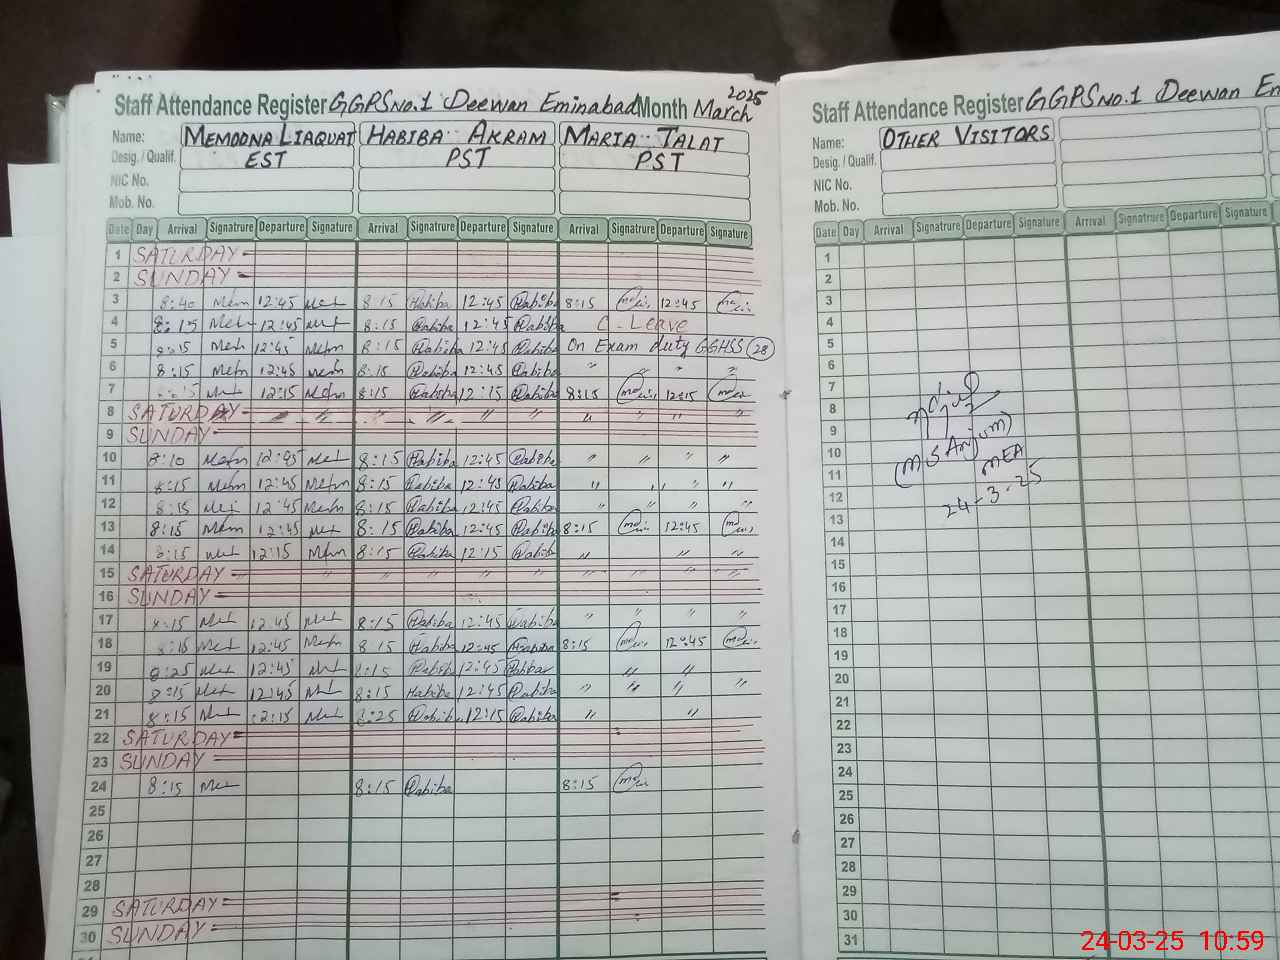 Staff Attendance Register GGPS No.1 Deewan Eminabad Month March 2025
Name: MEMOONA LIAQUAT HABIBA AKRAM MARIA TALAT
Desig. / Qualif. EST PST PST
NIC No.
Mob. No.
Date Day Arrival Signatrure Departure Signature Arrival Signatrure Departure Signature Arrival Signatrure Departure Signature
1 SATURDAY
2 SUNDAY
3 8:40 12:45 8:15 Habiba 12:45 Habiba 8:15 12:45
4 8:15 12:45 8:15 Habiba 12:45 Habiba C-Leave
5 8:15 12:45 8:15 Habiba 12:45 Habiba On Exam duty GGHSS 28
6 8:15 12:45 8:15 Habiba 12:45 Habiba " " "
7 12:15 8:15 Habiba 12:15 Habiba 8:15 12:15
8 SATURDAY " " " "
9 SUNDAY
10 8:10 12:45 8:15 Habiba 12:45 Habiba " " " "
11 8:15 12:45 8:15 Habiba 12:45 Habiba " " " "
12 8:15 12:45 8:15 Habiba 12:45 Habiba " " " "
13 8:15 12:45 8:15 Habiba 12:45 Habiba 8:15 12:45
14 8:15 12:15 8:15 Habiba 12:15 Habiba " " "
15 SATURDAY " " " " " " " "
16 SUNDAY
17 8:15 12:45 8:15 Habiba 12:45 Habiba " " " "
18 8:15 12:45 8:15 Habiba 12:45 Habiba 8:15 12:45
19 8:25 12:45 8:15 Habiba 12:45 Habiba " "
20 8:15 12:45 8:15 Habiba 12:45 Habiba " " " "
21 8:15 12:15 8:25 Habiba 12:15 Habiba " "
22 SATURDAY
23 SUNDAY
24 8:15 8:15 Habiba 8:15
25
26
27
28
29 SATURDAY
30 SUNDAY
Staff Attendance Register GGPS No.1 Deewan En
Name: OTHER VISITORS
Desig. / Qualif.
NIC No.
Mob. No.
Date Day Arrival Signatrure Departure Signature Arrival Signatrure Departure Signature
1
2
3
4
5
6
7
8
9
10
11
12
13
14
15
16
17
18
19
20
21
22
23
24
25
26
27
28
29
30
31
(M S Anjum)
MEA
24-3-25
24-03-25 10:59